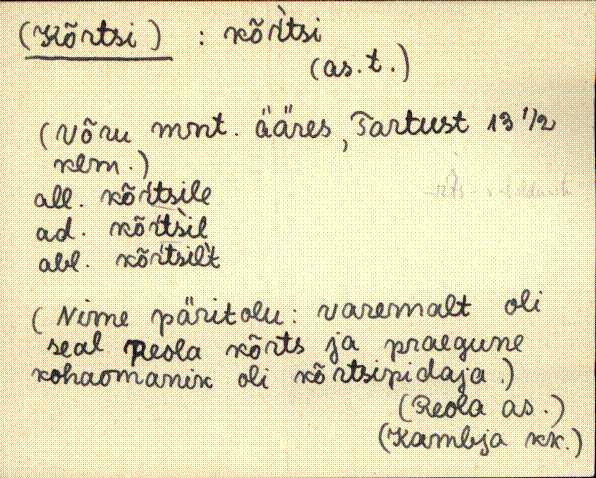 (Kõrtsi) : kõŕtsi
(as.t.)
(Võru mnt. ääres, Tartust 13 1/2
klm.)
all. kõŕtsile
ad. kõŕtsil
abl. kõŕtsilt
(Nime päritolu: varemalt oli
seal Reola kõrts ja praegune
kohaomanik oli kõrtsipidaja.)
(Reola as.)
(Kambja kk.)